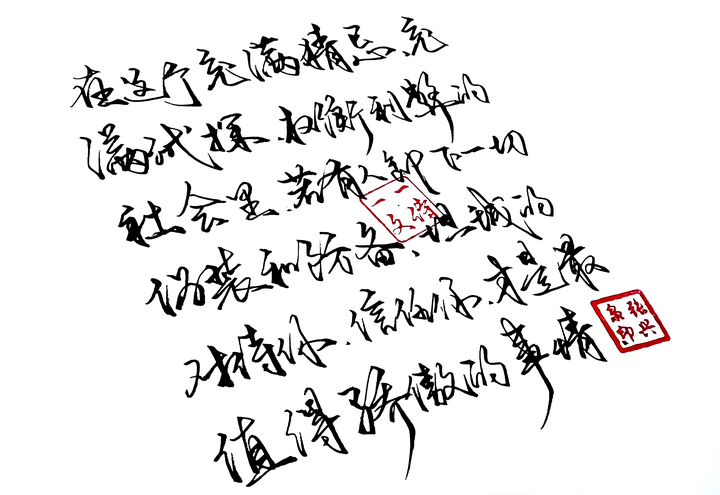 在这个充满猜忌、充
满试探、权衡利弊的
社会里、若有人卸下一切
伪装和防备、坦诚的
对待你、信任你、才是最
值得骄傲的事情
张兴
泉印